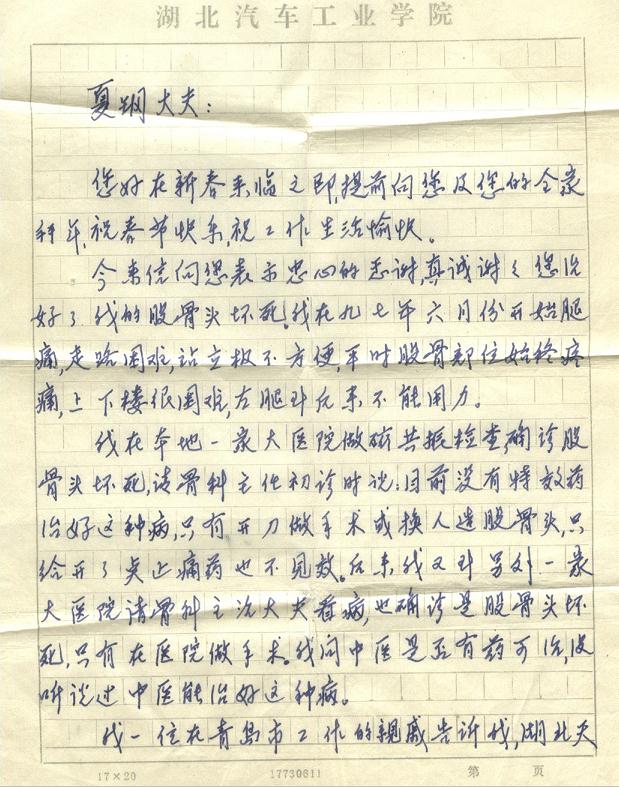 湖北汽车工业学院
夏钢大夫：
您好在新春来临之即，提前向您及您的全家
拜年，祝春节快乐，祝工作生活愉快。
今来信向您表示忠心的感谢，真诚谢谢您治
好了我的股骨头坏死。我在九七年六月份开始腿
痛，走路困难，站立极不方便，平时股骨部位始终疼
痛，上下楼很困难，左腿到后来不能用力。
我在本地一家大医院做磁共振检查，确诊股
骨头坏死，该骨科主任初诊时说：目前没有特效药
治好这种病，只有开刀做手术或换人造股骨头，只
给开了点止痛药也不见效。后来我又到另外一家
大医院请骨科主治大夫看病，也确诊是股骨头坏
死，只有在医院做手术。我问中医是否有药可治，没
听说过中医能治好这种病。
我一位在青岛市工作的亲戚告诉我，湖北天
17×20
17730611
第 页